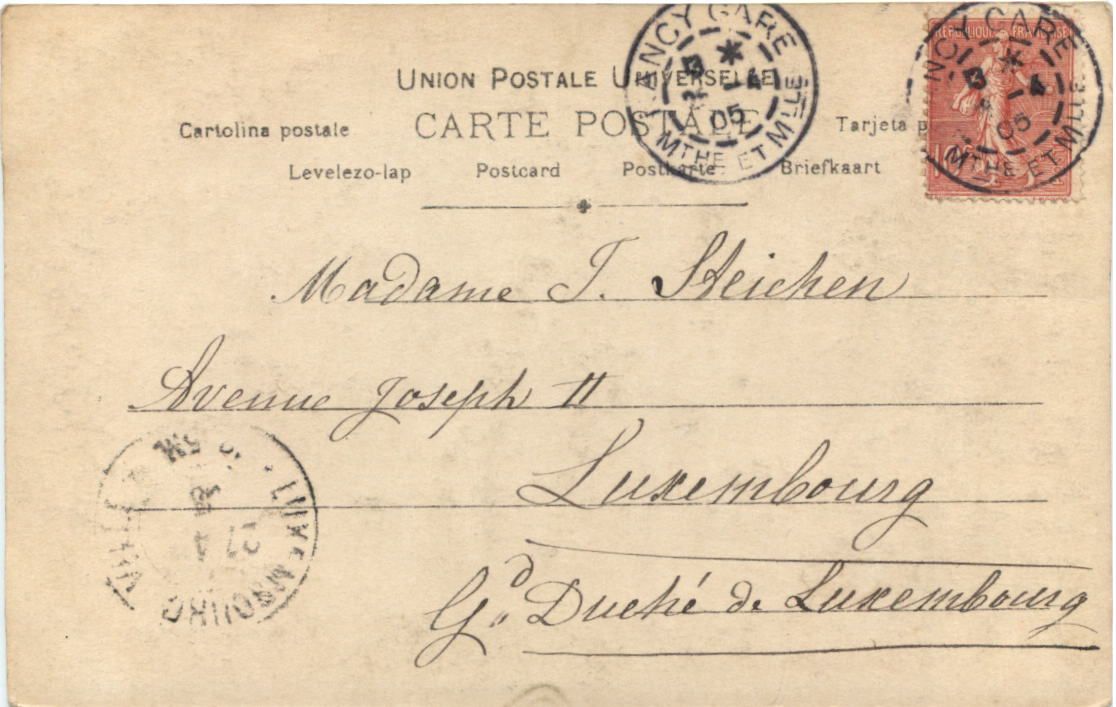 UNION POSTALE UNIVERSELLE
CARTE POSTALE
Cartolina postale
Tarjeta
Levelezo-lap Postcard Postkarte Briefkaart
NANCY GARE
* 
05
MTHE ET MLLE
REPUBLIQUE FRANÇAISE
NCY GARE
*
05
MTHE ET MLLE
Madame J. Steichen
Avenue Joseph II
Luxembourg
Gd. Duché de Luxembourg
LUXEMBOURG
VILLE